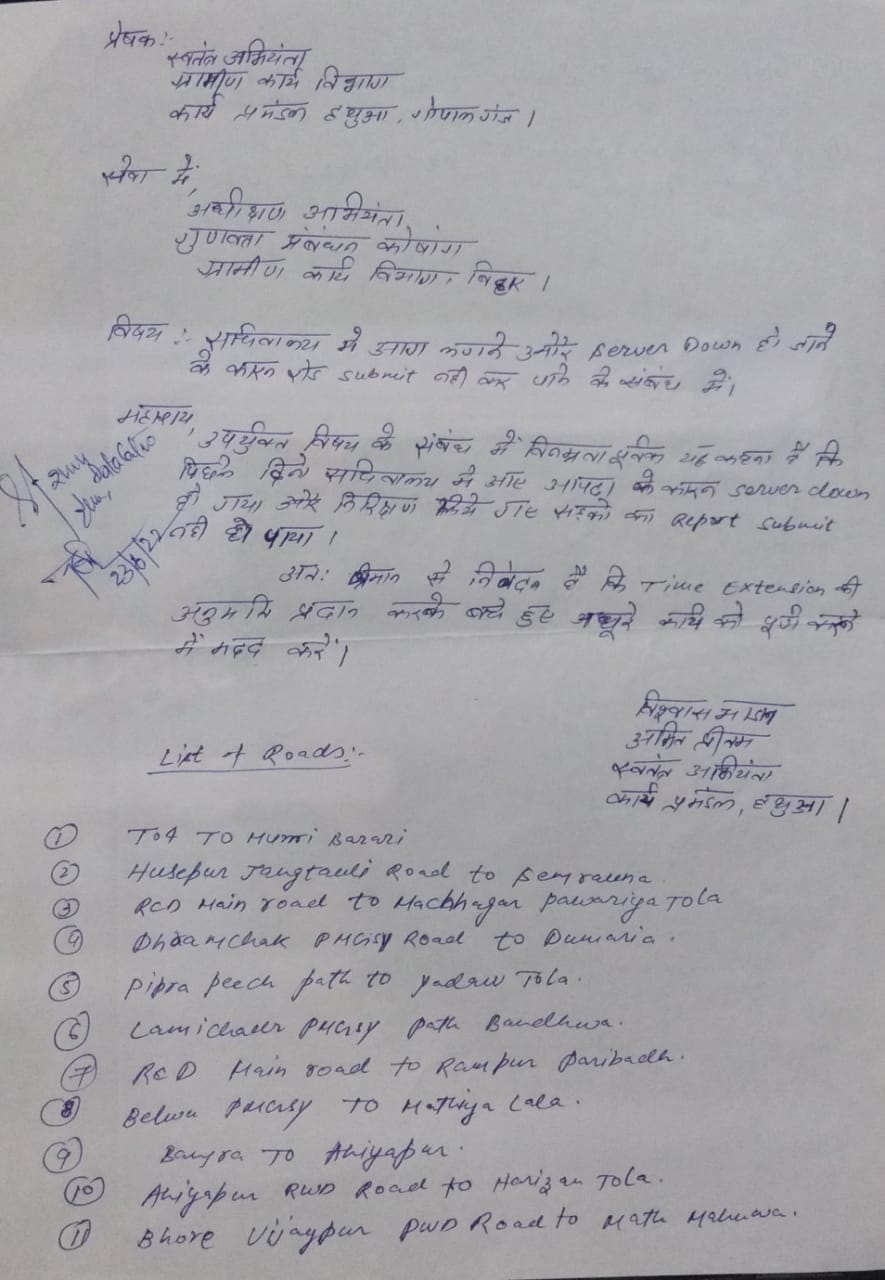 प्रेषक:-
स्वतंत्र अभियंता
ग्रामीण कार्य विभाग
कार्य प्रमंडल हथुआ, गोपालगंज।
सेवा में,
अधीक्षण अभियंता
गुणवता प्रबंधन कोषांग
ग्रामीण कार्य विभाग, बिहार।
विषय:- सचिवालय में आग लगने और Server Down हो जाने
के कारन रोड submit नही कर पाने के संबंध में।
महाशय,
उपर्युक्त विषय के संबंध में विनम्रता पूर्वक यह कहना है कि
पिछले दिनो सचिवालय में आए आपदा के कारन server down
हो गया और निरिक्षण किये गए सड़को का Report submit
नही हो पाया।
23/6/22
अतः श्रीमान से निवेदन है कि Time Extension की
अनुमति प्रदान करके बचे हुए अधूरे कार्य को पूरी करने
में मदद करें।
विश्वास मंडल
अमित प्रीतम
स्वतंत्र अभियंता
कार्य प्रमंडल, हथुआ।
List of Roads:-
① T04 TO Humri Barari
② Husepur Jangtauli Road to Semrauna
③ RCD Main road to Machhagar pawariya Tola
④ Dhramchak PMGSY Road to Dumaria.
⑤ Pipra peech path to yadaw Tola.
⑥ Lamichaur PMGSY path Bandhwa.
⑦ RCD Main road to Rampur Daribadh.
⑧ Belwa PMGSY TO Mathiya Lala.
⑨ Bangra TO Ahiyapur.
⑩ Ahiyapur RWD Road to Harizan Tola.
⑪ Bhore Vijaypur PWD Road to Math Mahuwa.